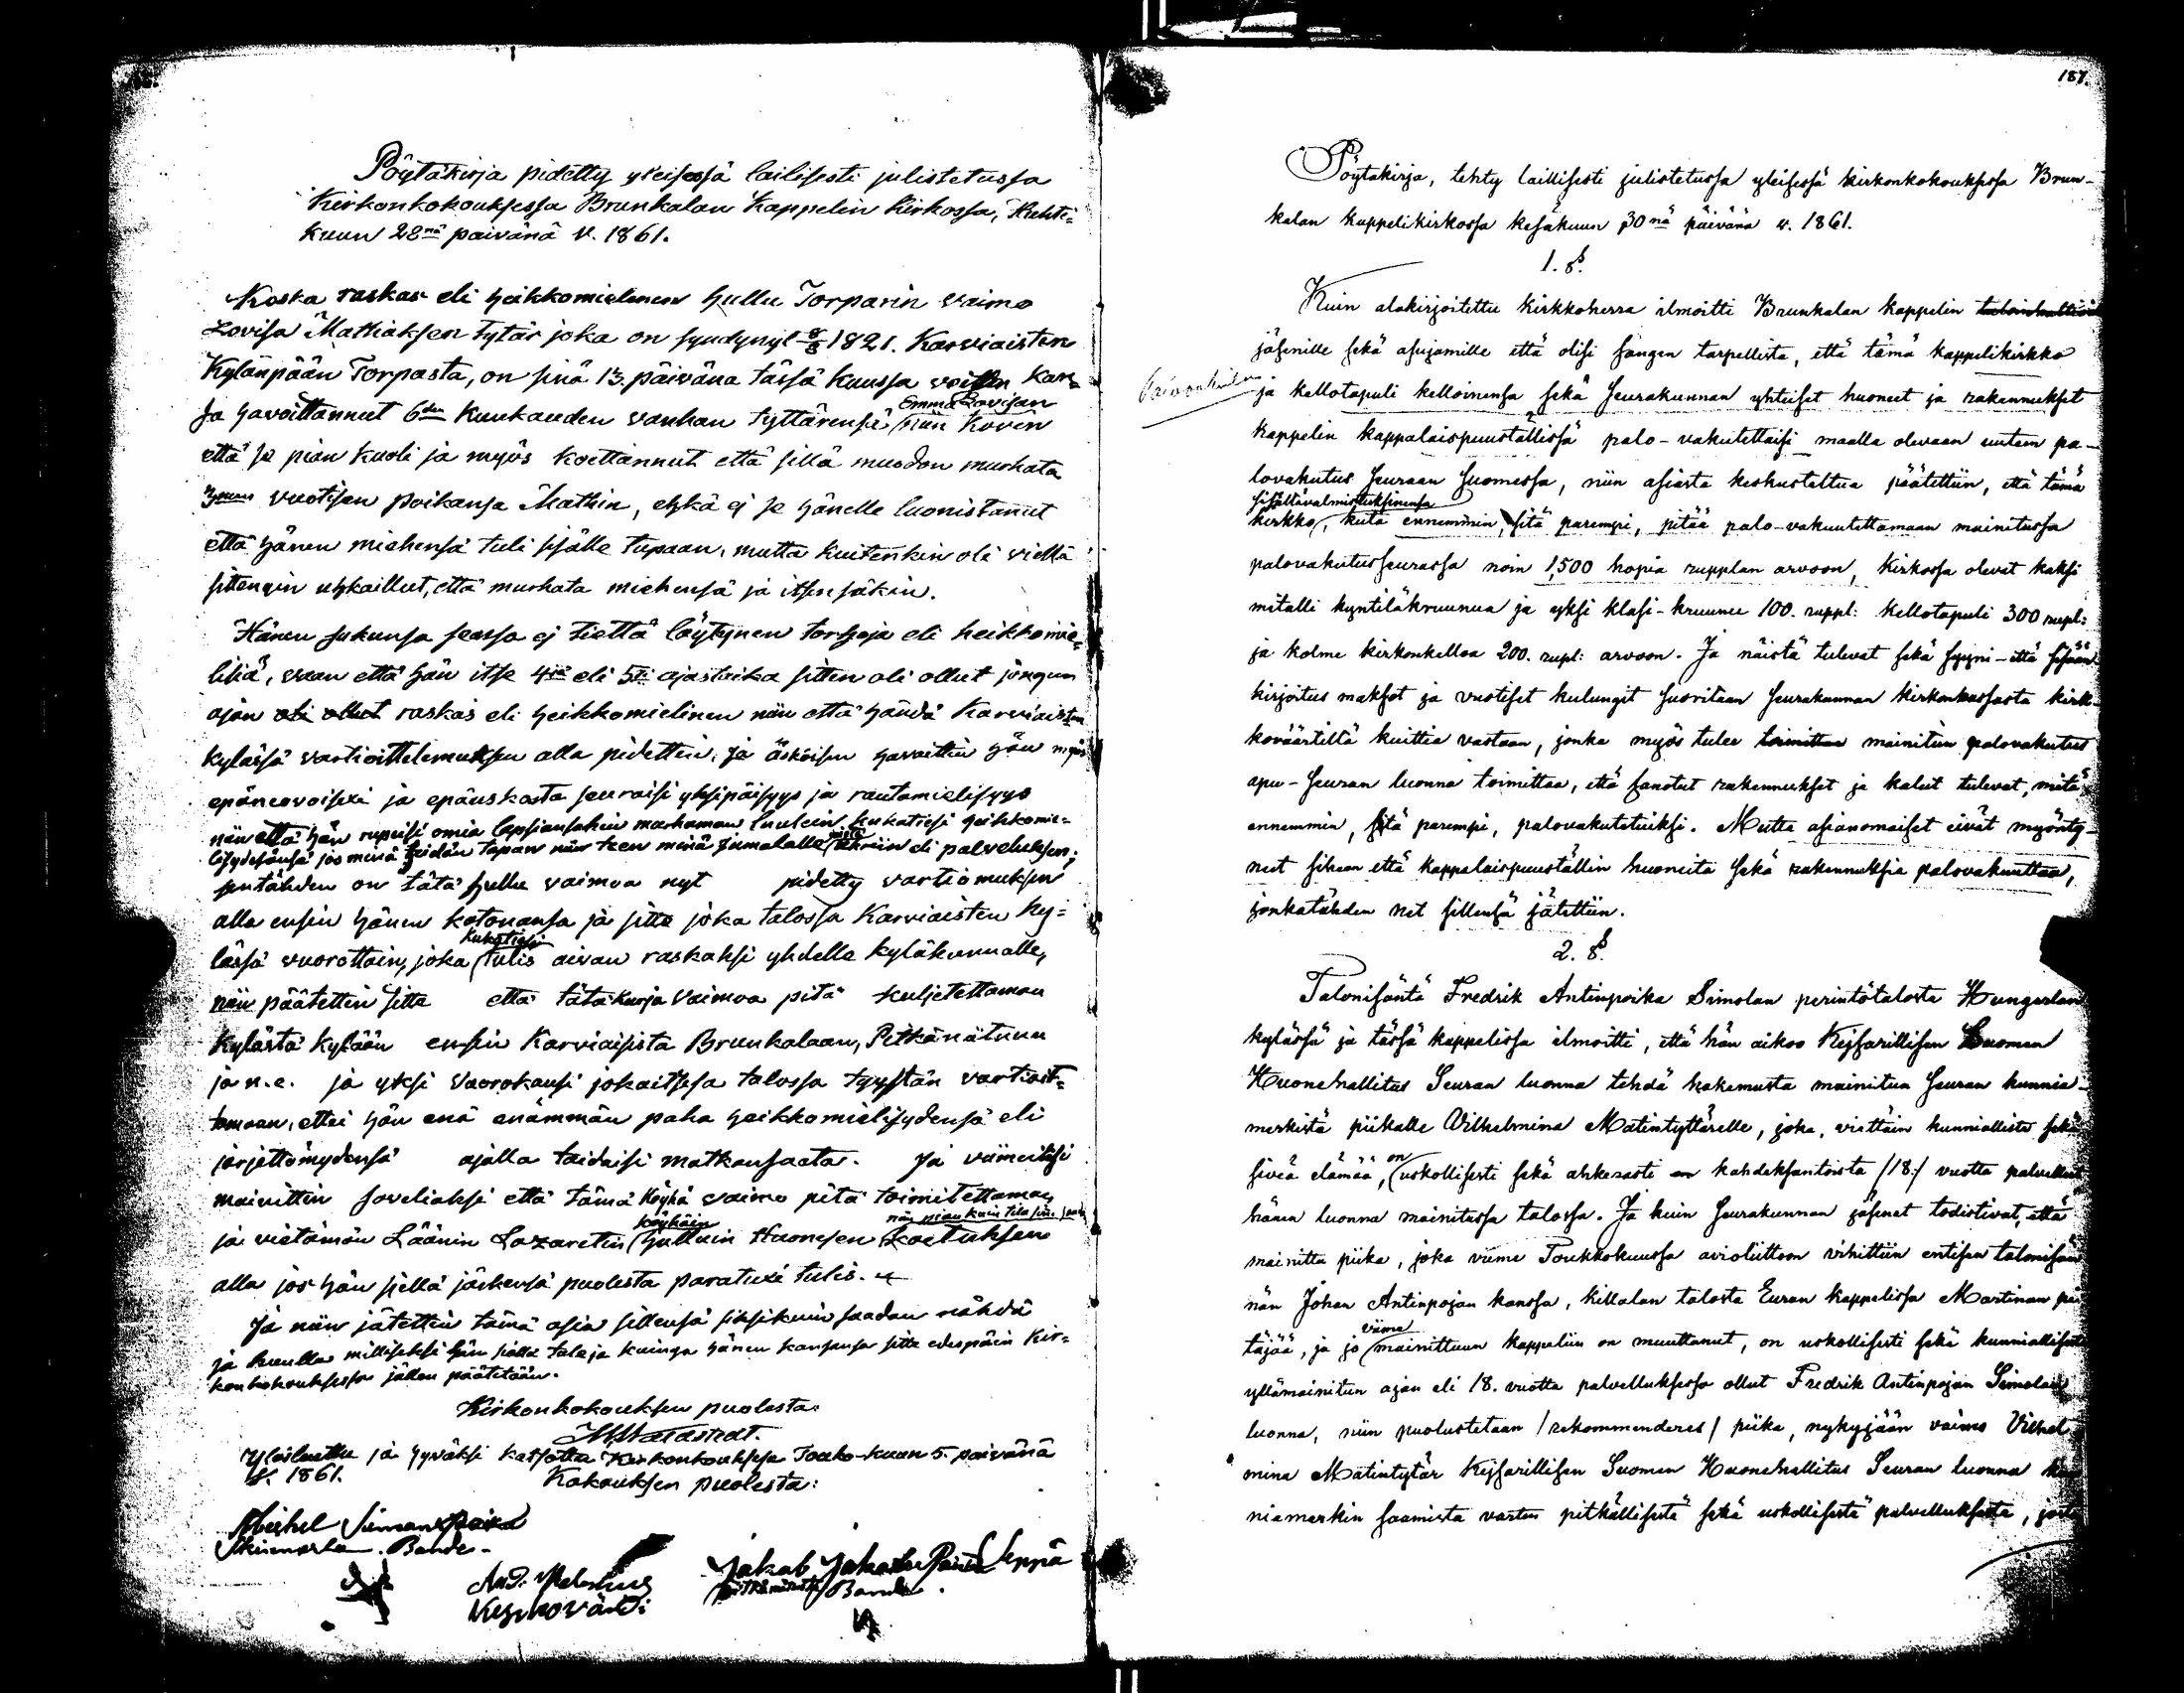 Pöytäkirja pidetty yleisessä lailisesti julistetussa
Kirkonkokouksessa Brunkalan Kappelin Kirkossa, Huhti-
kuun 28nä päivänä v. 1861.
Koska raskas eli heikkomielinen hullu Torparin vaimo
Lovisa Mathiaksen tytär joka on syndynyt 1821. Karviaisten
Kylänpään Torpasta, on sinä 13. päivänä tässä kuussa veitten kan-
sa havoittannut 6den kuukauden vanhan tyttärensä Emma Lovisan niin kovin
että se pian kuoli ja myös koettannut että sillä muodon murhata
3men vuotisen poikansa Mathin, ehkä ej se hänelle luonistannut
että hänen miehensä tuli sisälle tupaan, mutta kuitenkin oli viellä
sittenqin uhkaillut, että murhata miehensä ja itsensäkin.
Hänen sukunsa seassa ej tiettä löytynen torhoja eli heikkomie-
lisiä, vaan että hän itse 4jä eli 5si ajastaika sitten oli ollut jongun
ajan oli ollut raskas eli heikkomielinen niin että händä Karviaisten
kylässä vartioittelemuksen alla pidettiin. Ja äsköisen havaittiin hän myös
epäneuvoisexi ja epäuskosta seuraisi yksipäisyys ja rautamielisyys
niin että hän rupeisi omia lapsiansakin murhaman luulein kukatiesi heikkomie-
lisydesänsä jos minä heidän tapan niin teen minä Jumalalle uhrin eli palveluksen;
sentähden on tätä hullu vaimoa nyt pidetty vartiomuksen
alla ensin hänen kotonansa ja sitte joka talossa Karviaisten ky-
lässä vuorottain, joka kukatiesi tulis aivan raskaksi yhdelle kyläkunnalle,
niin päätettin sitte että tätä kurja vaimoa pitä kuljetettaman
kylästä kylään ensin Karviaisista Brunkalaan, Pitkänätnun
ja n.e. ja yksi vuorokausi jokaitsesa talossa tyystän vartioit-
taman, ettei hän enä enämmän paha heikkomielisydensä eli
järjettömydensä ajalla taidaisi matkansaata. Ja viimeiseksi
mainittin soveliaksi että tämä köyhä vaimo pitä toimitettaman
ja vietämän Läänin Lazarettin köyhäin hulluin Huonesen niin pian kuin tila sin saada koetuksen
alla jos hän siellä järkensä puolesta paratuxi tulis.
Ja niin jätettin tämä asia sillensä siksikuin saadan nähdä
ja kuulla millisexi hän siellä tule ja kuinga hänen kansansa sitte edespäin Kir-
konkokouksessa jällen päätetään.
Kirkonkokouksen puolesta:
Ylösluettu ja hyväksi katsottu Kirkonkouksesa Touko-kuun 5. päivänä
V. 1861. Kokouksen puolesta:
Michel Simonspoika
Bonde
Jakob Jakobs Poika Seppä
Bonde
187.
Pöytäkirja, tehty laillisesti julistetussa yleisessä kirkonkokouksessa Brun-
kalan kappelikirkossa kesäkuun 30nä päivänä v. 1861.
1. §.
Kuin alakirjoitettu kirkkoherra ilmoitti Brunkalan kappelin
jäsenille sekä asujamille että olisi sangen tarpellista, että tämä kappelikirkko
ja kellotapuli kelloinensa sekä seurakunnan yhteiset huoneet ja rakennukset
kappelin kappalaispuuställissä palo-vakutettaisi maalla olevaan uuteen pa-
lovakutus Seuraan Suomessa, niin asiasta keskusteltua päätettiin, että tämä
kirkko, sisältävalmistuksinensa kuta ennemmin, sitä parempi, pitää palo-vakuutettamaan mainitussa
palovakutusseurassa noin 1,500 hopia rupplan arvoon, kirkossa olevat kaksi
mitalli kyntiläkruunua ja yksi klasi-kruunu 100. ruppl: kellotapuli 300 rupl:
ja kolme kirkonkelloa 200. rupl: arvoon. Ja näistä tulevat sekä syyni- että sisään
kirjoitus maksot ja vuotiset kulungit suoritaan seurakunnan kirkonkassasta kirk-
koväärtiltä kuittia vastaan, jonka myös tulee toimittaa mainitun palovakutus
apu-Seuran luonna toimittaa, että sanotut rakennukset ja kalut tulevat, mitä
ennemmin, sitä parempi, palovakutetuiksi. Mutta asianomaiset eivät myönty-
net siihen että kappalaispuuställin huoneita sekä rakennuksia palovakuuttaa,
jonkatähden net sillensä jätettiin.
2. §.
Talonisäntä Fredrik Antinpoika Simolan perintötalosta
kylässä ja tässä kappelissa ilmoitti, että hän aikoo Kejsarillisen Suomen
Huonehallitus Seuran luonna tehdä hakemusta mainitun Seuran kunnia-
merkistä piikalle Vilhelmina Matintyttärelle, joka, viettäin kunniallista sekä
siveä elämää, on uskollisesti sekä ahkerasti on kahdeksantoista /18./ vuotta palvellut
hänen luonna mainitussa talossa. Ja kuin Seurakunnan jäsenet todistivat, että
mainittu piika, joka viime Toukkokuussa avioliittoon vihittiin entisen talonisän-
nän Johan Antinpojan kanssa, Killalan talosta Euran kappelissa Martinan pi-
täjää, ja jo viime mainittuun kappeliin on muuttanut, on uskollisesti sekä kunniallisesti
yllämainitun ajan eli 18. vuotta palvelluksessa ollut Fredrik Antinpojan Simolan
luonna, niin puolustetaan /rekommenderas/ piika, nykyjään vaimo Vilhel-
mina Matintytär Kejsarillisen Suomen Huonehallitus Seuran luonna kun-
niamerkin saamista vastus pitkällisestä sekä uskollisestä palvelluksesta, josta